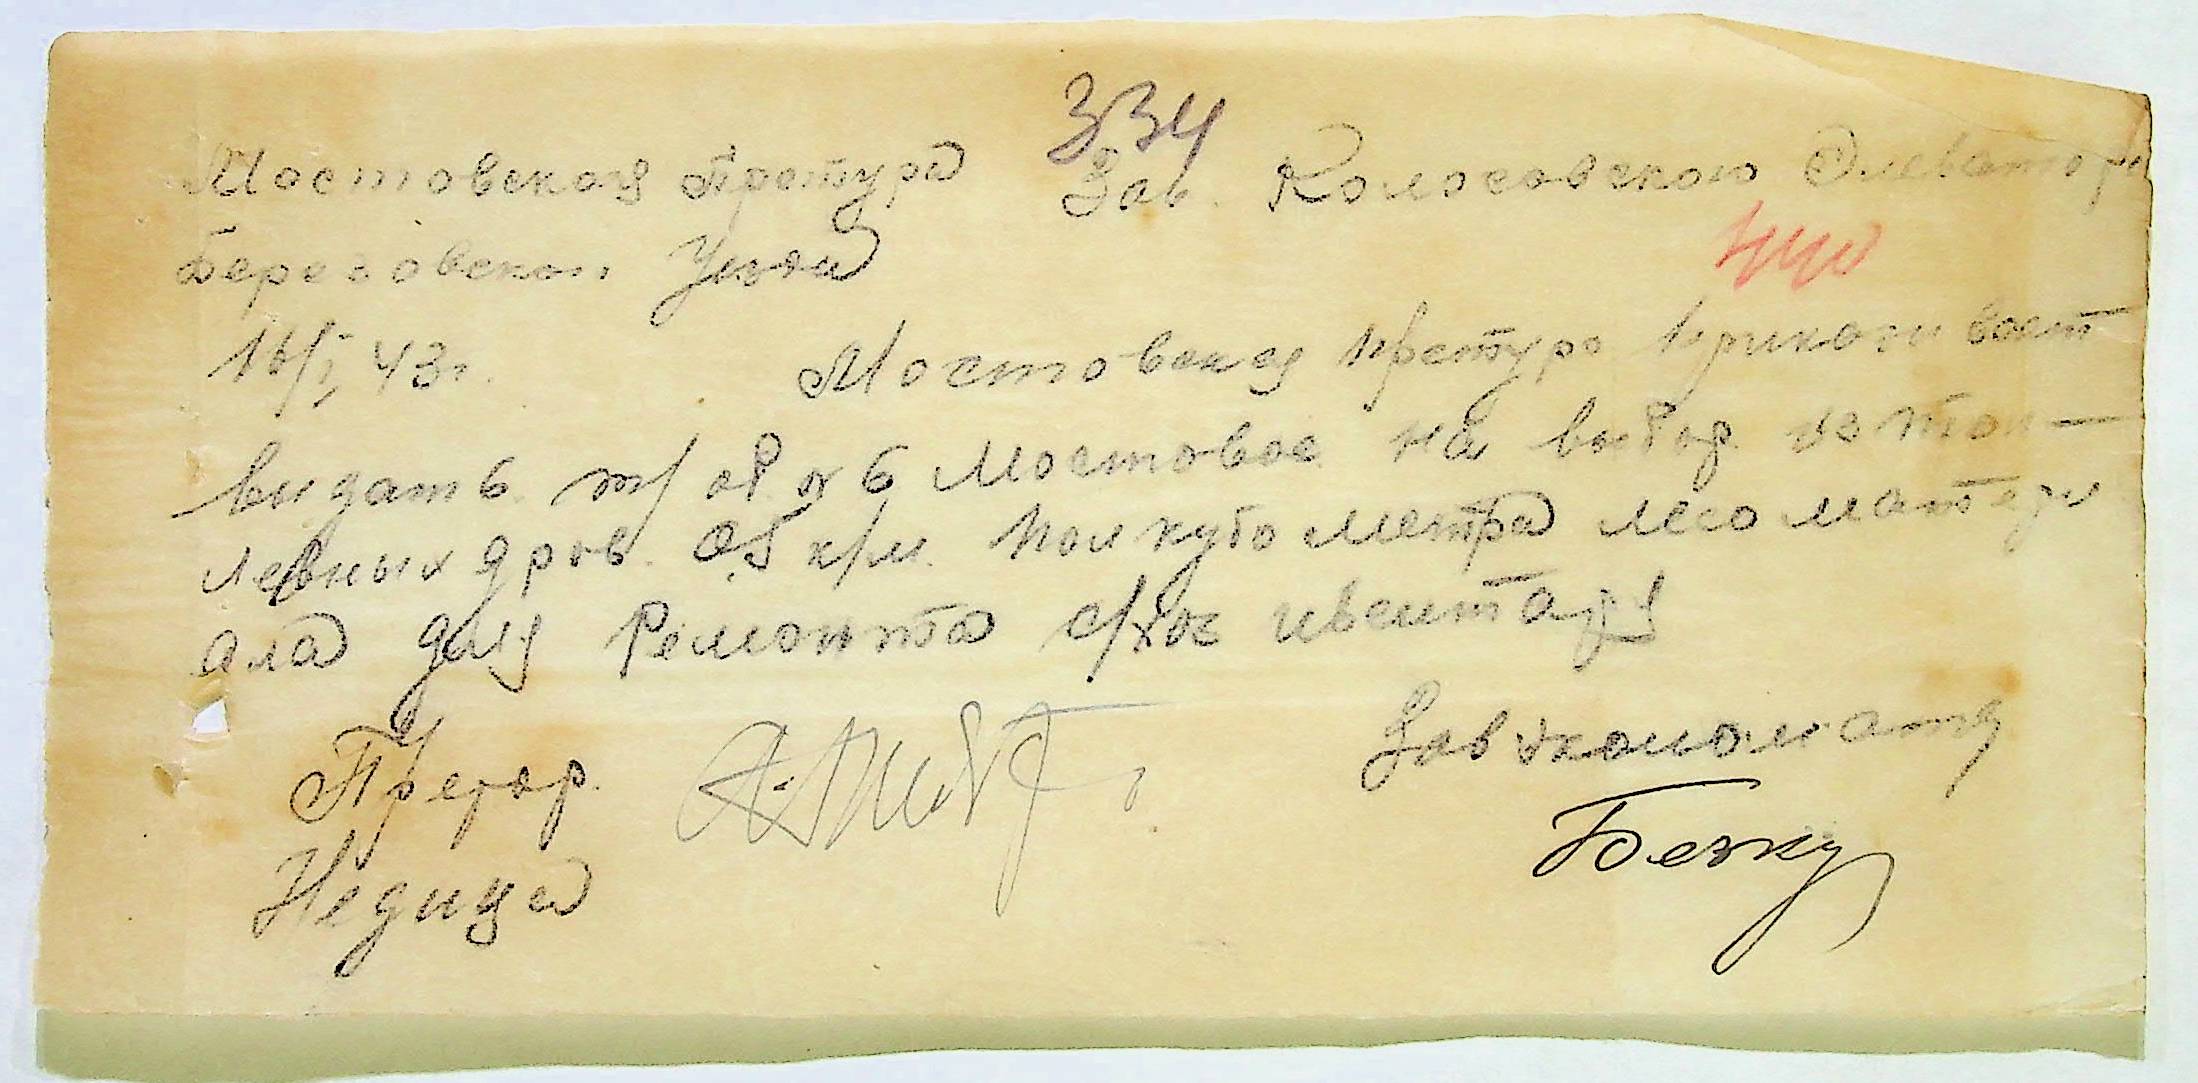 334
Мостовская Претура Зав. Колосовского Элеватора
Березовского Уезда
16/I 43г. Мостовская Претура приказывает
выдать т/ об х б Мостовое на выбор из топ-
левных дров 0,5 к/м. Пол кубо метра лесоматери
ала для Ремонта с/хоз ивентаря
Претор. Зав экономата
Недица Безку